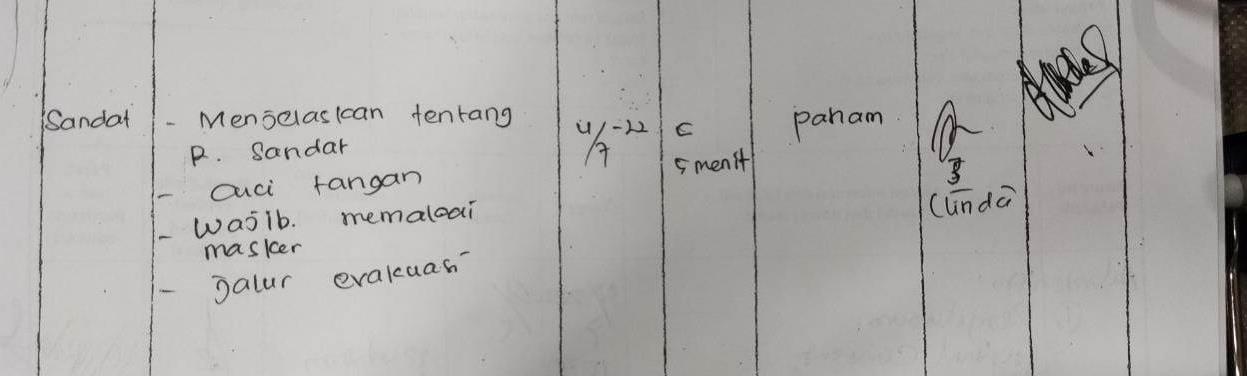 Sandat
- Menjelaskan tentang
R. Sandat
- Cuci tangan
- Wajib. memakai
masker
- Jalur evakuasi
4/7 -22
C
5 menit
paham
(Linda